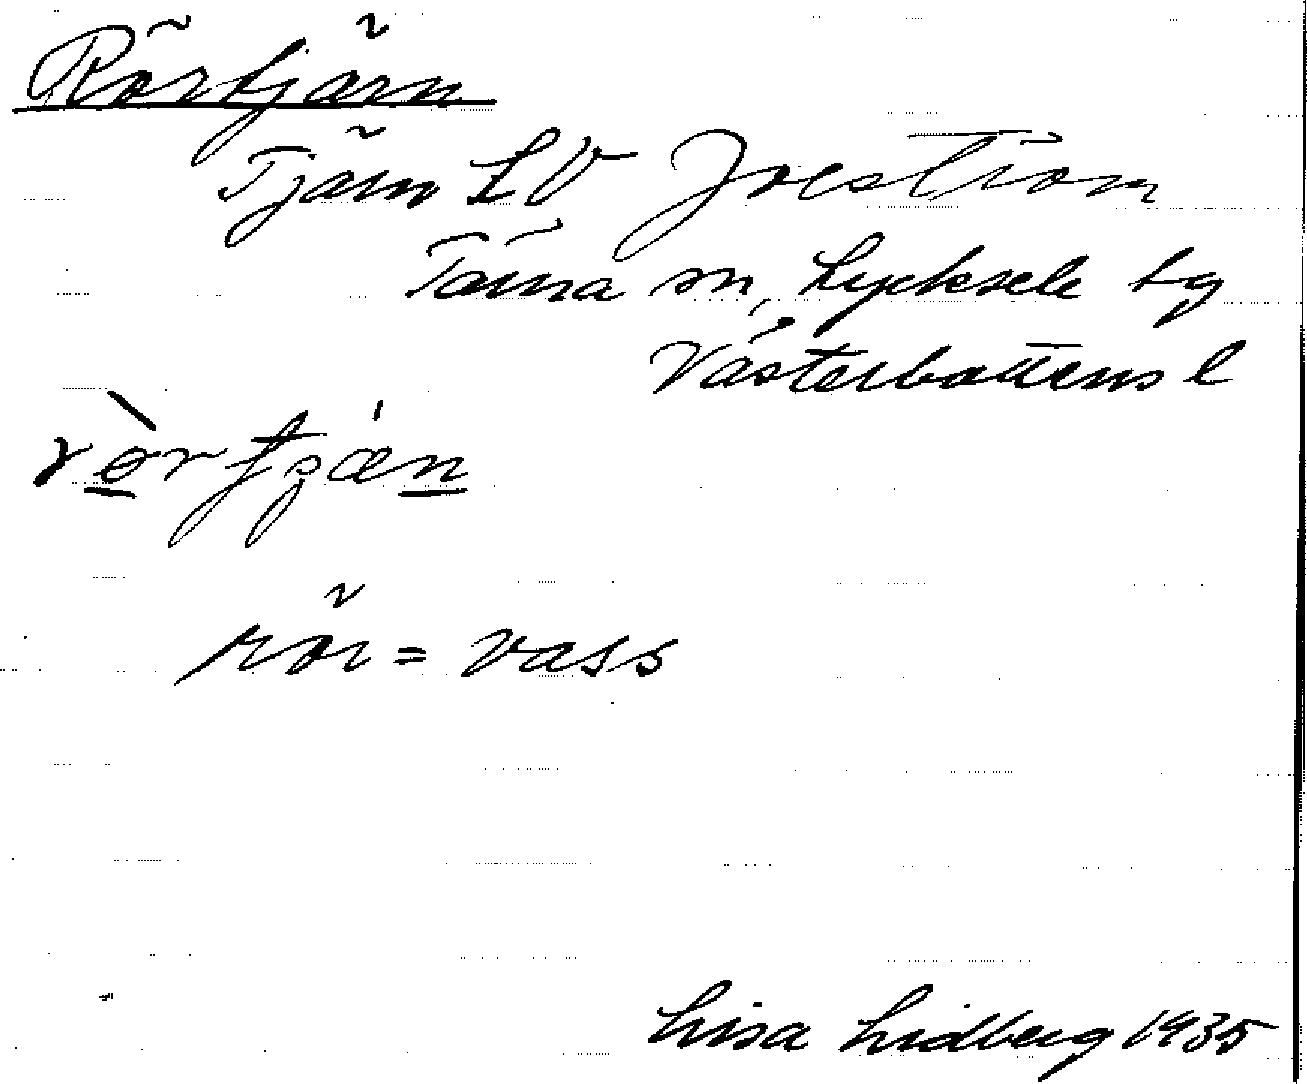 Rörtjärn
Tjärn LV Joeström
Tärna sn, Lycksele tg
Västerbottens l
rör = vass
Lisa Lidberg 1935